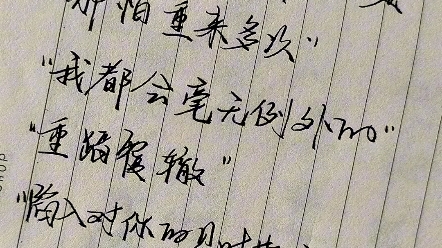 哪怕重来多次"
"我都会毫无例外的"
"重蹈覆辙"
"陷入对你的